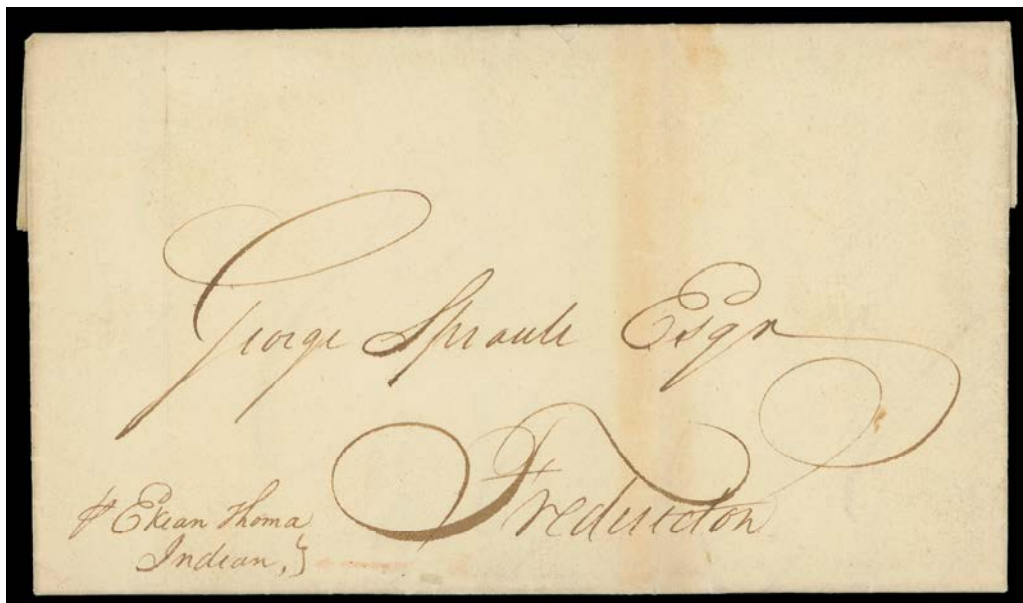 George Sproule Esqr
Fredericton
⅌ Ekian Thoma
Indian,